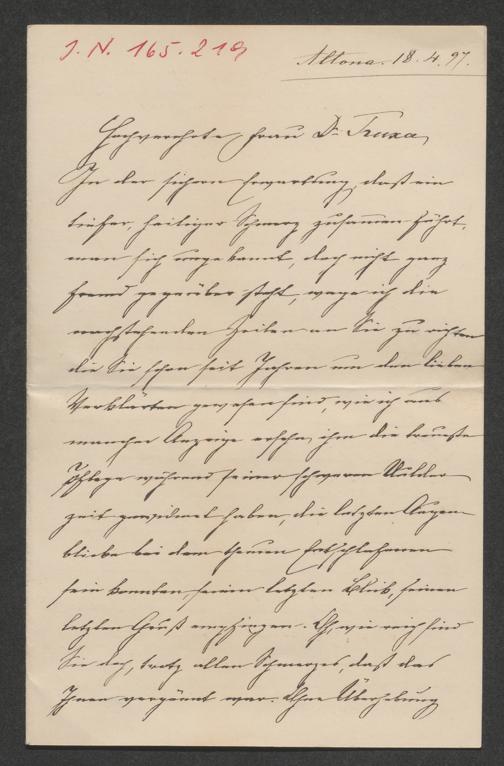 J. N. 165.219
Altona. 18.4.97.
Hochverehrte Frau Dr. Truxa,
In der sichern Erwartung, daß ein
tiefer, heiliger Schmerz zusammen führt,
man sich ungekannt, doch nicht ganz
fremd gegenüber steht, wage ich die
nachstehenden Zeilen an Sie zu richten
die Sie schon seit Jahren um den lieben
Verklärten gewesen sind, wie ich aus
mancher Anzeige ersehe, ihm die treueste
Pflege während seiner schweren
zeit gewidmet haben, die letzten Augen
blicke bei dem theuren Entschlafenen
sein konnten seinen letzten Blick, seinen
letzten Gruß empfingen. O, wie reich sind
Sie doch, trotz allen Schmerzes, daß das
Ihnen vergönnt war. Ohne Überhebung